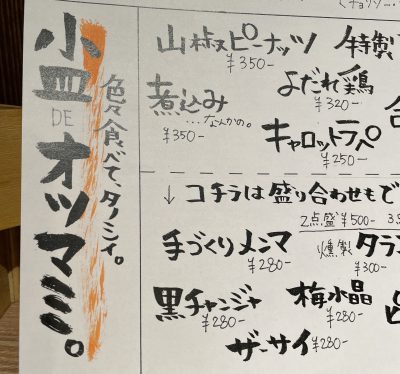 小皿
DE
オツマミ。
色々食べて、タノシイ。
山椒ピーナッツ
¥350-
特製
よだれ鶏
¥320-
煮込み
...なんかの。
¥350-
キャロットラペ
¥250-
↓コチラは盛り合わせもで
2点盛¥500-
手づくりメンマ
¥280-
燻製
タラ
¥300-
黒チャンジャ
¥280-
梅水晶
¥280-
ザーサイ¥280-